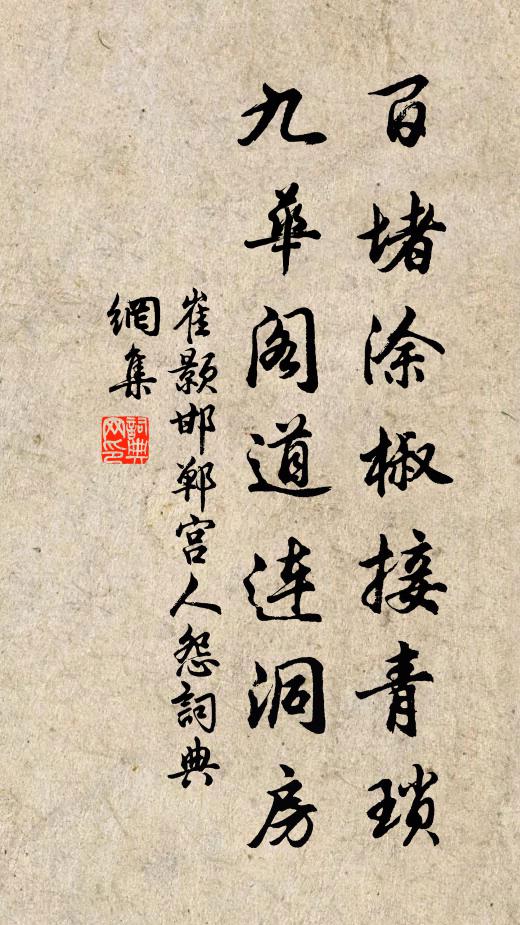 百堵涂椒接青瑣
九華阁道连洞房
崔颢邯郸宫人怨詞典
網集
詞典
网印